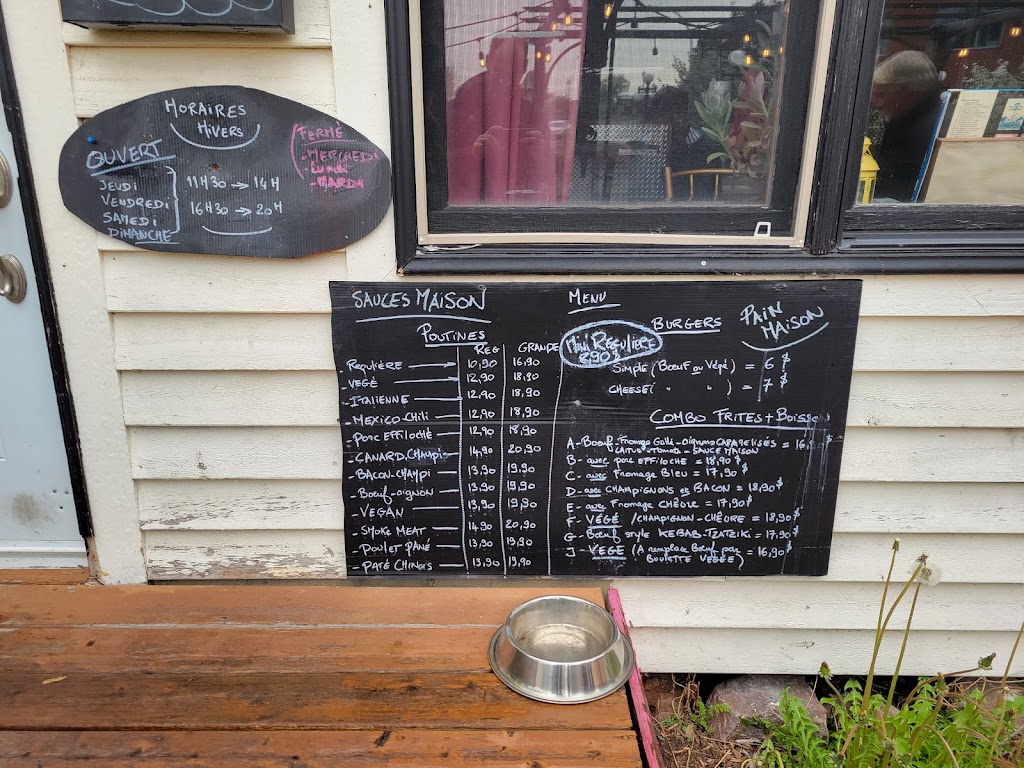 HORAIRES
HIVERS
OUVERT
JEUDI
VENDREDI
SAMEDI
DIMANCHE
11H30 → 14H
16H30 → 20H
FERMÉ
- MERCREDI
- Lundi
- MARDI
SAUCES MAISON
POUTINES
REG GRANDE
Régulière 10,90 16,90
- VEGÉ 12,90 18,90
- ITALIENNE 12,90 18,90
- MEXICO-Chili 12,90 18,90
- PORC EFFILOCHÉ 12,90 18,90
- CANARD, CHAMPI 14,90 20,90
- BACON-CHAMPI 13,90 19,90
- Bœuf-oignon 13,90 19,90
- VEGAN 13,90 19,90
- SMOKE MEAT 14,90 20,90
- POULET PANÉ 13,90 19,90
- PATÉ CHINOIS 13,90 19,90
MENU
MINI RÉGULIÈRE
8,90$
BURGERS
PAIN
MAISON
SIMPLE (BŒUF ou Végé) = 6$
CHEESE ( " " ) = 7$
COMBO FRITES + BOISSO
A- Bœuf-Fromage Grillé-Oignons CARAMELISÉS = 16,
LAITUE-TOMATE-SAUCE MAISON
B- avec porc EFFILOCHÉ = 18,90$
C- avec Fromage BLEU = 17,90$
D- avec CHAMPIGNONS et BACON = 18,90$
E- avec Fromage CHÈVRE = 17,90$
F- VÉGÉ /CHAMPIGNON-CHÈVRE = 18,90$
G- Bœuf style KEBAB-TZATZIKI = 17,90$
J- VEGE (A remplace Bœuf par = 16,90$
BOULETTE VÉGÉE)